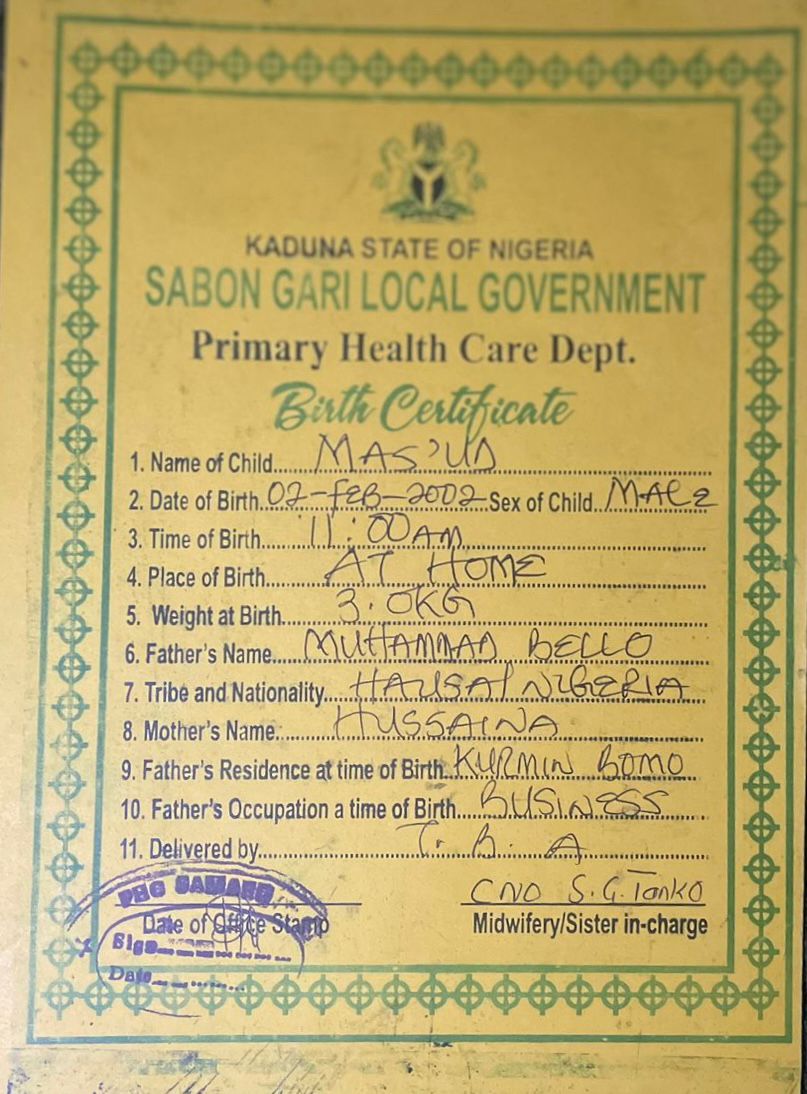 KADUNA STATE OF NIGERIA
SABON GARI LOCAL GOVERNMENT
Primary Health Care Dept.
Birth Certificate
1. Name of Child MAS'UD
2. Date of Birth 02-FEB-2002 Sex of Child MALE
3. Time of Birth 11:00AM
4. Place of Birth AT HOME
5. Weight at Birth 3.0KG
6. Father's Name MUHAMMAD BELLO
7. Tribe and Nationality HAUSA/NIGERIA
8. Mother's Name HUSSAINA
9. Father's Residence at time of Birth KURMIN BOMO
10. Father's Occupation a time of Birth BUSINESS
11. Delivered by T. B. A
PHC SAMARU
CNO S.G.Tanko
Date of Office Stamp Midwifery/Sister in-charge
Sign
Date